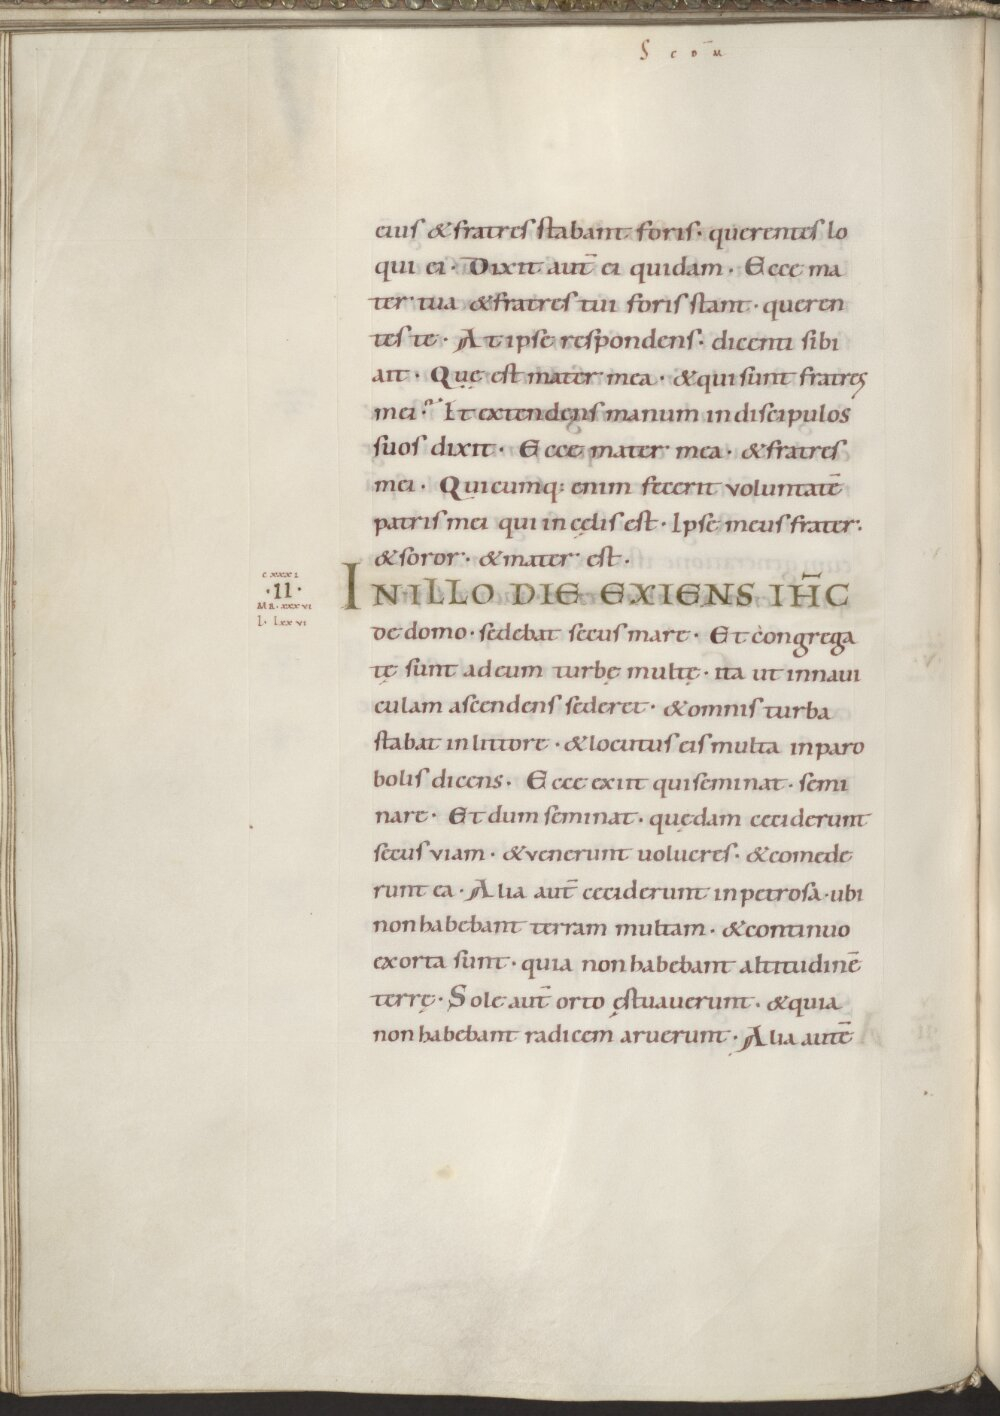 S c o̅ m
eius & fratres stabant foris· querentes lo
qui ei· Dixit aut̅ ei quidam· Ecce ma
ter tua & fratres tui foris stant· queren
tes te· At ipse respondens· dicenti sibi
ait· Quę est mater mea· & qui sunt fratres
mei· Et extendens manum in discipulos
suos dixit· Ecce mater mea· & fratres
mei· Quicumq: enim fecerit voluntate̅
patris mei qui in cęlis est· Ipse meus frater·
& soror· & mater est·
c xxx i
·II·
MR· xxx vi
L· Lxx vi
IN ILLO DIE EXIENS IH̅C
de domo· sedebat secus mare· Et congrega
tę sunt ad eum turbę multę· ita ut in naui
culam ascendens sederet· & omnis turba
stabat in littore· & locutus eis multa in para
bolis dicens· Ecce exiit qui seminat· semi
nare· Et dum seminat· quędam ceciderunt
secus viam· & venerunt uolucres· & comede
runt ea· Alia aut̅ ceciderunt in petrosa· ubi
non habebant terram multam· & continuo
exorta sunt· quia non habebant altitudine̅
terrę· Sole aut̅ orto ęstuauerunt· & quia
non habebant radicem aruerunt· Alia aute̅